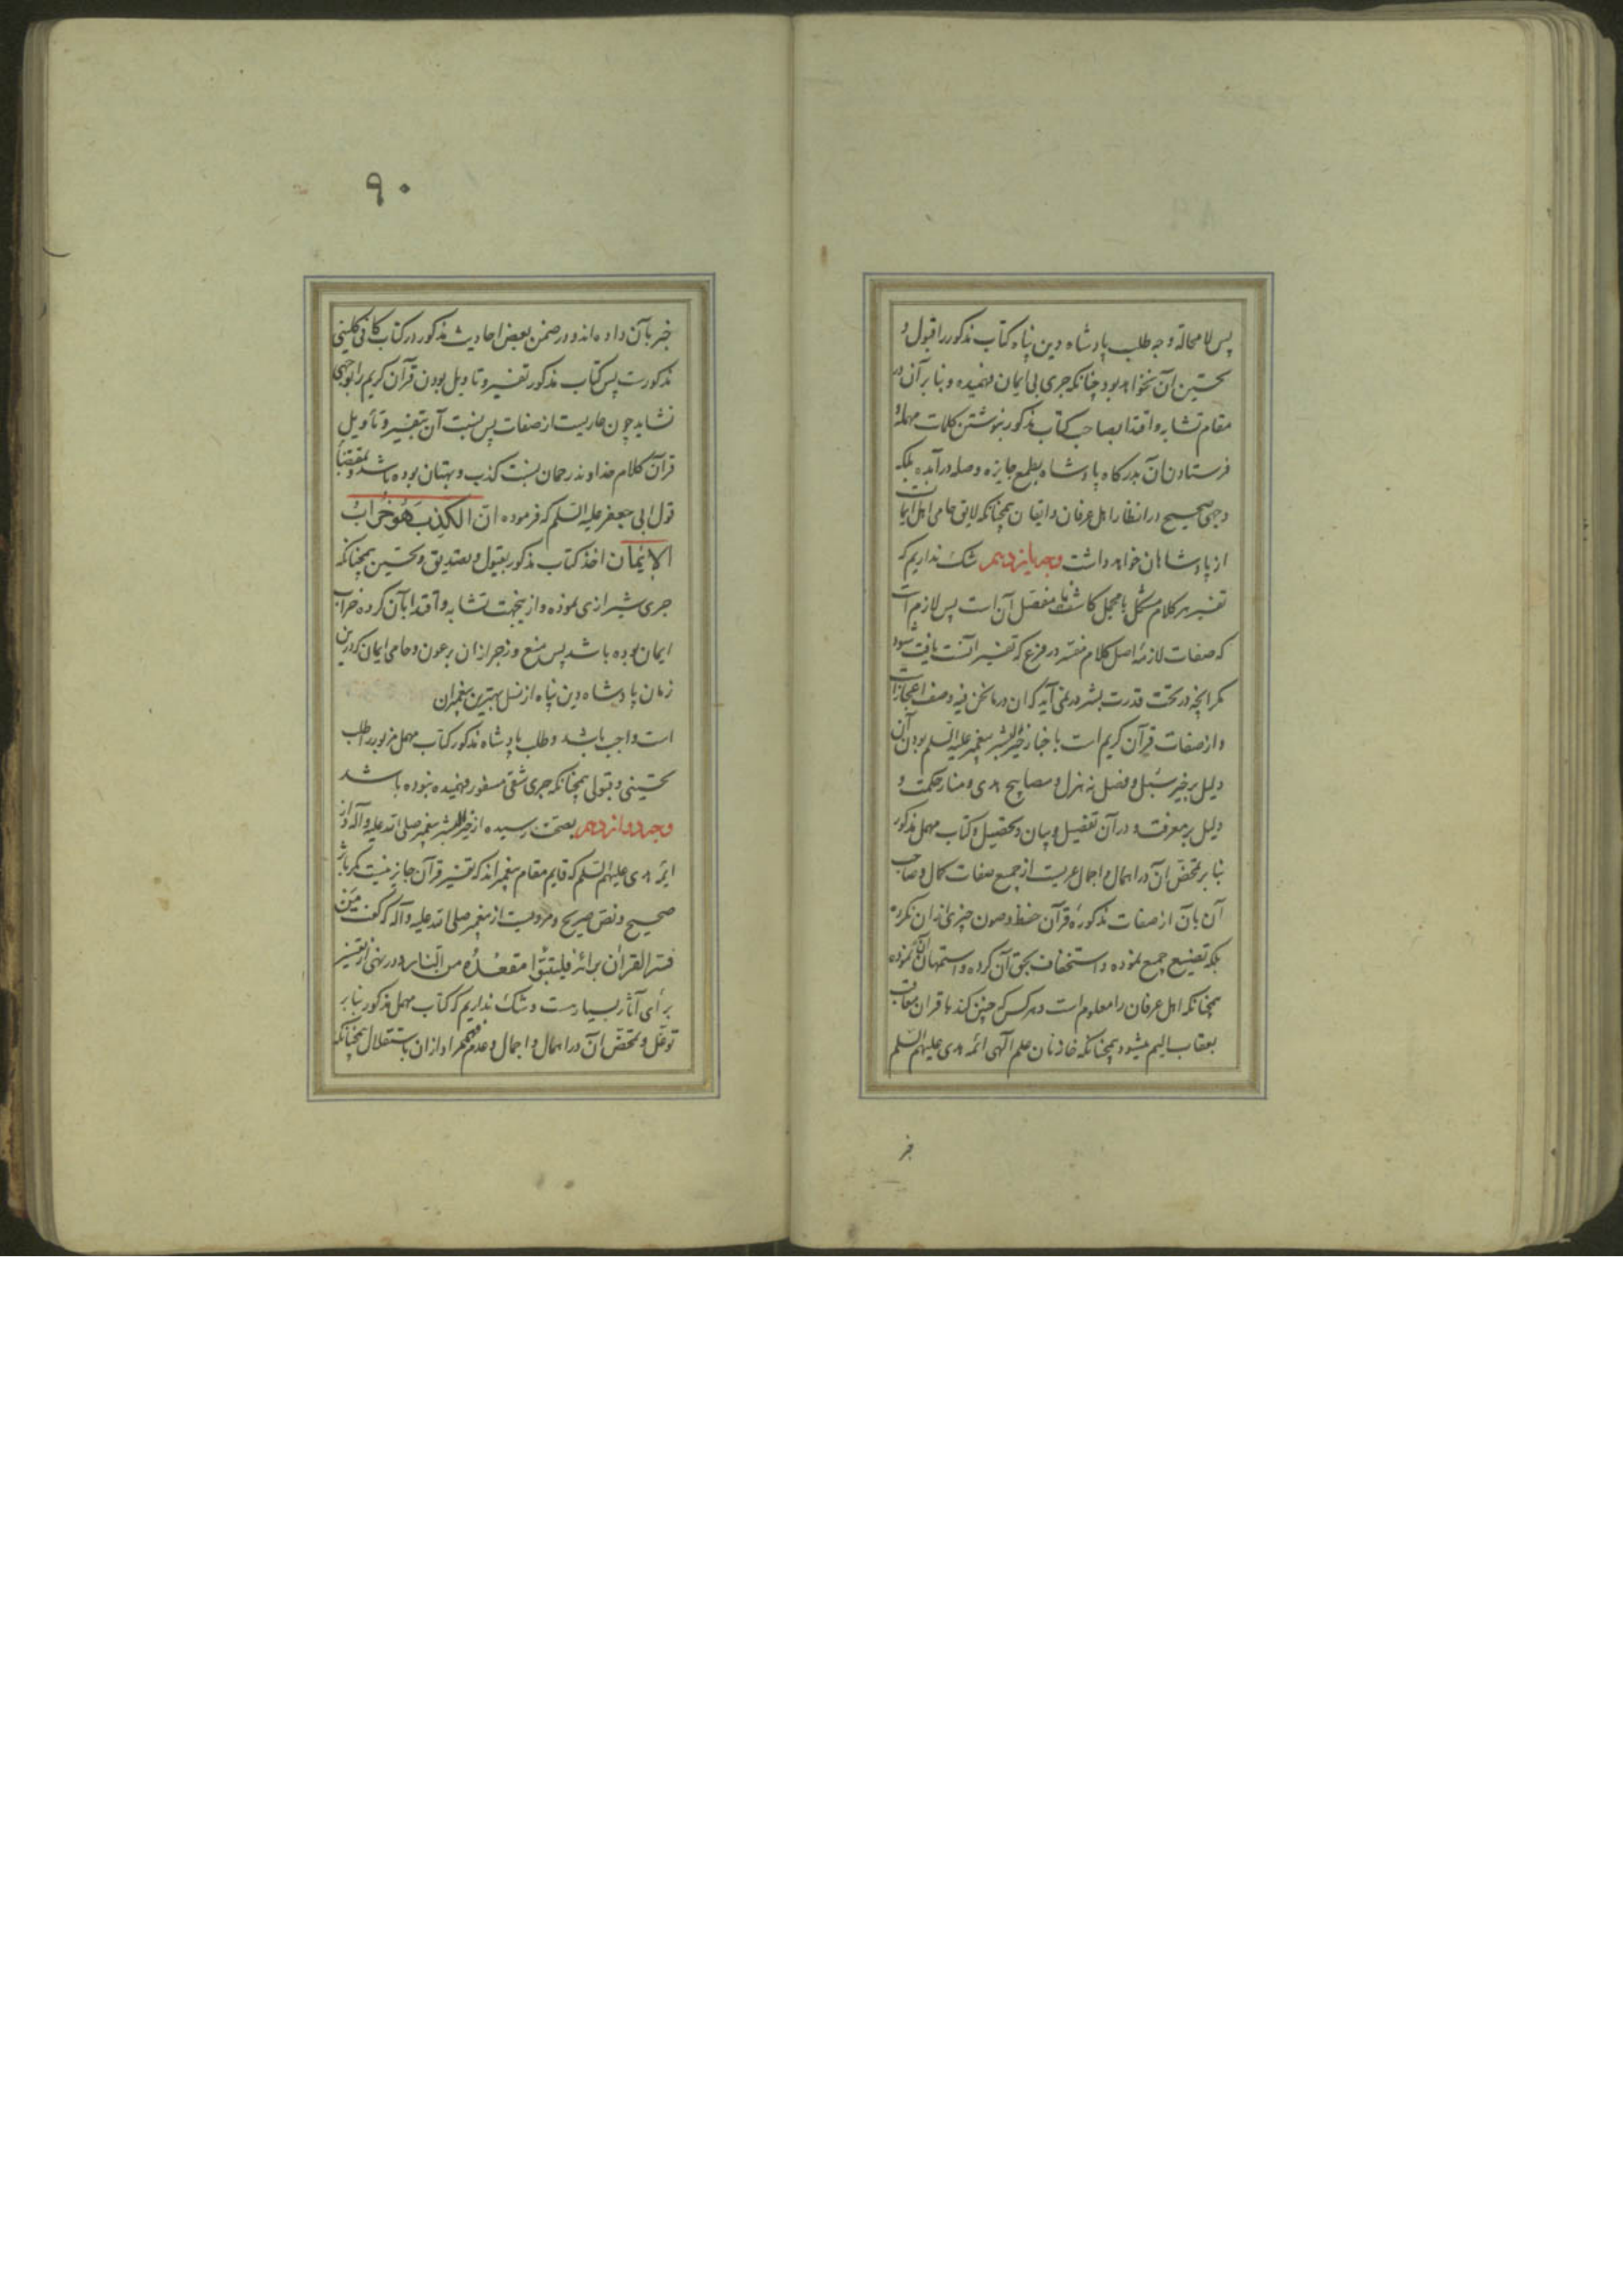 پس لا محالة وجه طلب پادشاه دین پناه کتاب مذکور را قبول و
تحسین آن نخواهد بود چنانکه جری بی ایمان فهمیده و بنا بر آن در
مقام تشابه و اقتدا بصاحب کتاب مذکور بنوشتن کلمات مهمله و
فرستادن آن بدرگاه پادشاه بطمع جایزه و صله درآمده بلکه
وجهی صحیح در انظار اهل عرفان و ایقان همچنانکه لایق حامی اهل ایمانست
از پادشاهان خواهد داشت وجه یازدهم شک نداریم که
تفسیر هر کلام مشکل یا مجمل کاشف یا مفصل آن است پس لازم است
که صفات لازمهٔ اصل کلام مفسَّر در فرع که تفسیر آنست یافت شود
مگر آنچه در تحت قدرت بشر در نمی آید که آن در ما نحن فیه وصف اعجازست
و از صفات قرآن کریم است باخبار خیر البشر پیغمبر علیه السلم بودن آن
دلیل بر خیر سبل و فصل نه هزل و مصابیح هدی و منار حکمت و
دلیل بر معرفت و در آن تفصیل و بیان و تحصیل و کتاب مهمل مذکور
بنا بر تمحض آن در اهمال و اجمال عریست از جمیع صفات کمال و صاحب
آن بآن از صفات مذکوره قرآن حفظ و صون چیزی از آن نکرده
بلکه تضییع جمیع نموده و استخفاف بحق آن کرده و استهان بآن نموده
همچنانکه اهل عرفان را معلوم است و هر کس که چنین کند با قرآن معاقب
بعقاب الیم میشود همچنانکه خازنان علم الهی ائمه هدی علیهم السلم
خبر
۹۰
خبر بآن داده اند و در ضمن بعض احادیث مذکور در کتاب کافی کلینی
مذکورست پس کتاب مذکور تفسیر و تاویل بودن قرآن کریم را بوجهی
نشاید چون عاریست از صفات پس نسبت آن بتفسیر و تأویل
قرآن کلام خداوند رحمان نسبت کذب و بهتان بوده باشد و بمقتضای
قول ابی جعفر علیه السلم که فرموده انّ الکِذِبَ هُوَ خَرابُ
الایمان اخذ کتاب مذکور بقبول و بتصدیق و تحسین همچنانکه
جری شیرازی نموده و از ینجهت تشابه و اقتدا بآن کرده خراب
ایمان بوده باشد پس منع و زجر از آن بر عون و حامی ایمان که درین
زمان پادشاه دین پناه از نسل بهترین پیغمبران
است واجب باشد و طلب پادشاه مذکور کتاب مهمل مزبور را طلب
تحسینی و قبولی همچنانکه جری شقی مسفور فهمیده نبوده باشد
وجه دوازدهم بصحت رسیده از خیر البشر پیغمبر صلی الله علیه و آله و از
ائمه هدی علیهم السلم که قایم مقام پیغمبراند که تفسیر قرآن جایز نیست مگر باثر
صحیح و نص صریح و مرویست از پیغمبر صلی الله علیه و آله که گفت مَن
فسّر القرآن برائه فلیتبوّأ مقعدُه من النار و در نهی از تفسیر
برأی آثار بسیارست و شک نداریم که کتاب مهمل مذکور بنا بر
توغل و تمحض آن در اهمال و اجمال و عدم فهم مراد از آن باستقلال همچنانکه